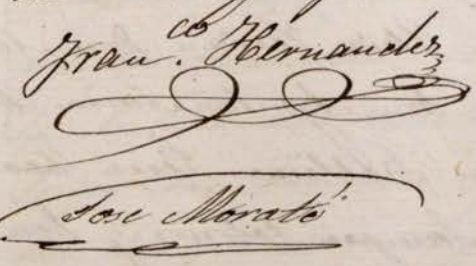 Fran.co Hernandez
Jose Moraté